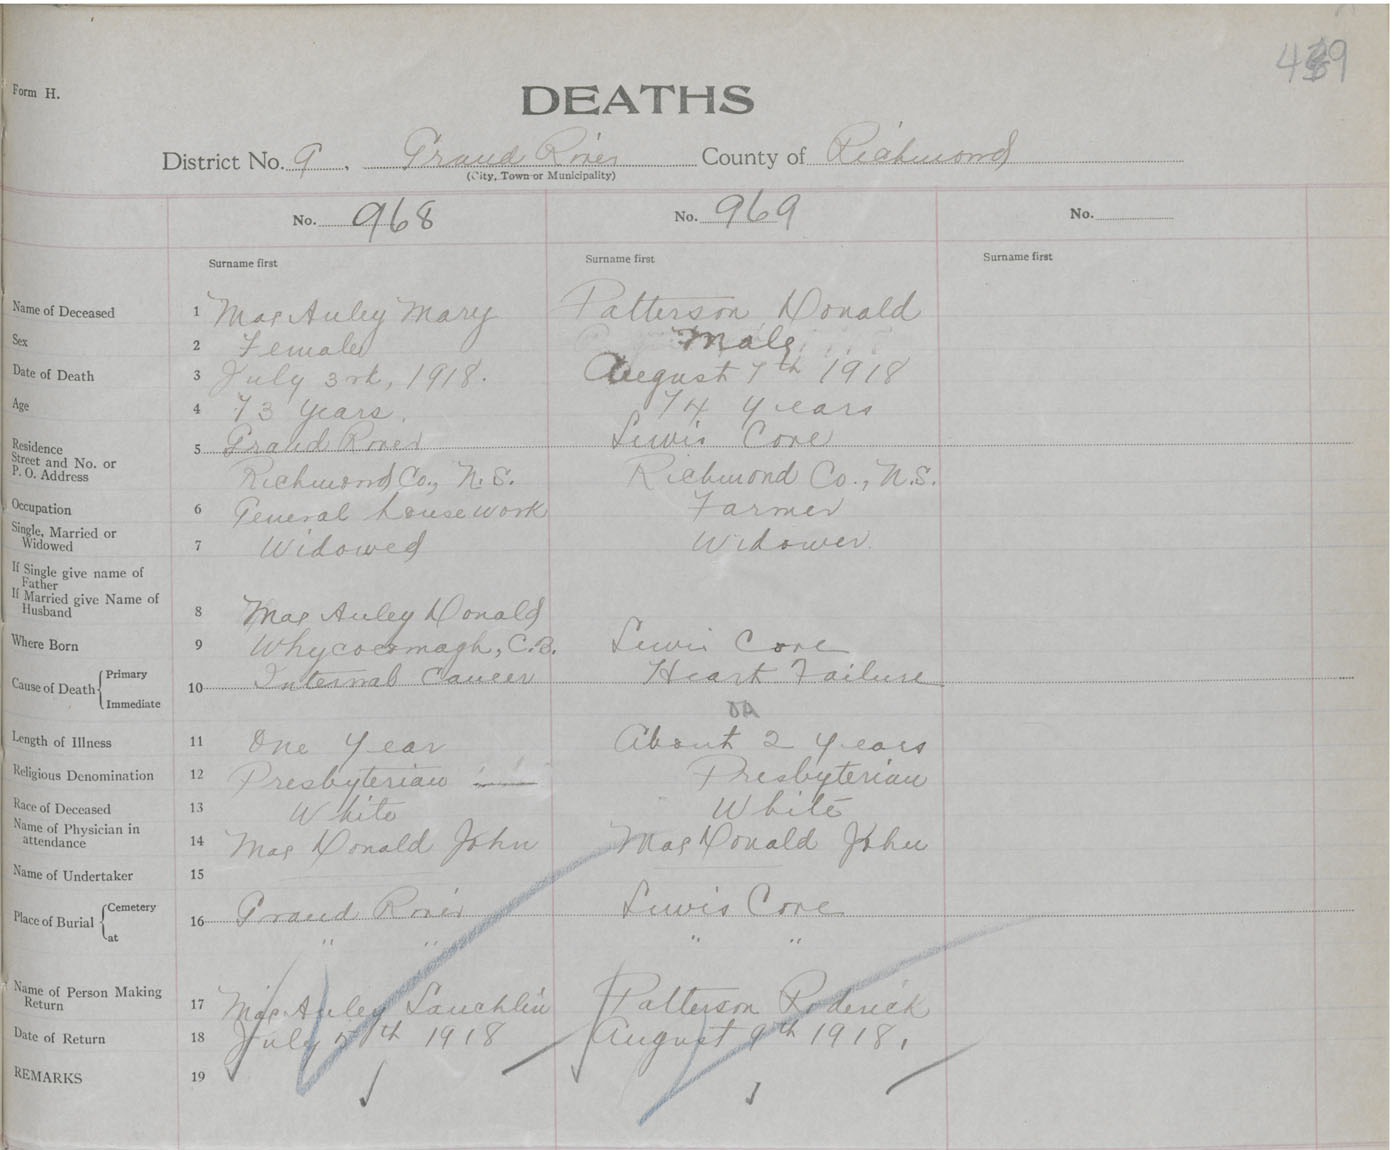 Form H.
DEATHS
District No. 9, Grand River County of Richmond
(City, Town or Municipality)
No. 968 No. 969 No.
Surname first Surname first Surname first
Name of Deceased 1 MacAuley Mary Patterson Donald
Sex 2 Female Male
Date of Death 3 July 3rd, 1918. August 7th 1918
Age 4 73 Years. 74 Years
Residence 5 Grand River Lewis Cove
Street and No. or
P. O. Address Richmond Co., N.S. Richmond Co., N.S.
Occupation 6 General housework Farmer
Single, Married or
Widowed 7 Widowed Widower.
If Single give name of
Father
If Married give Name of
Husband 8 MacAuley Donald
Where Born 9 Whycocomagh, C.B. Lewis Cove
Cause of Death Primary 10 Internal Cancer Heart Failure
Immediate
Length of Illness 11 One Year About 2 Years
Religious Denomination 12 Presbyterian Presbyterian
Race of Deceased 13 White White
Name of Physician in
attendance 14 MacDonald John MacDonald John
Name of Undertaker 15
Place of Burial Cemetery 16 Grand River Lewis Cove
at " " " "
Name of Person Making
Return 17 MacAuley Lauchlin Patterson Roderick
Date of Return 18 July 5th 1918 August 9th 1918.
REMARKS 19